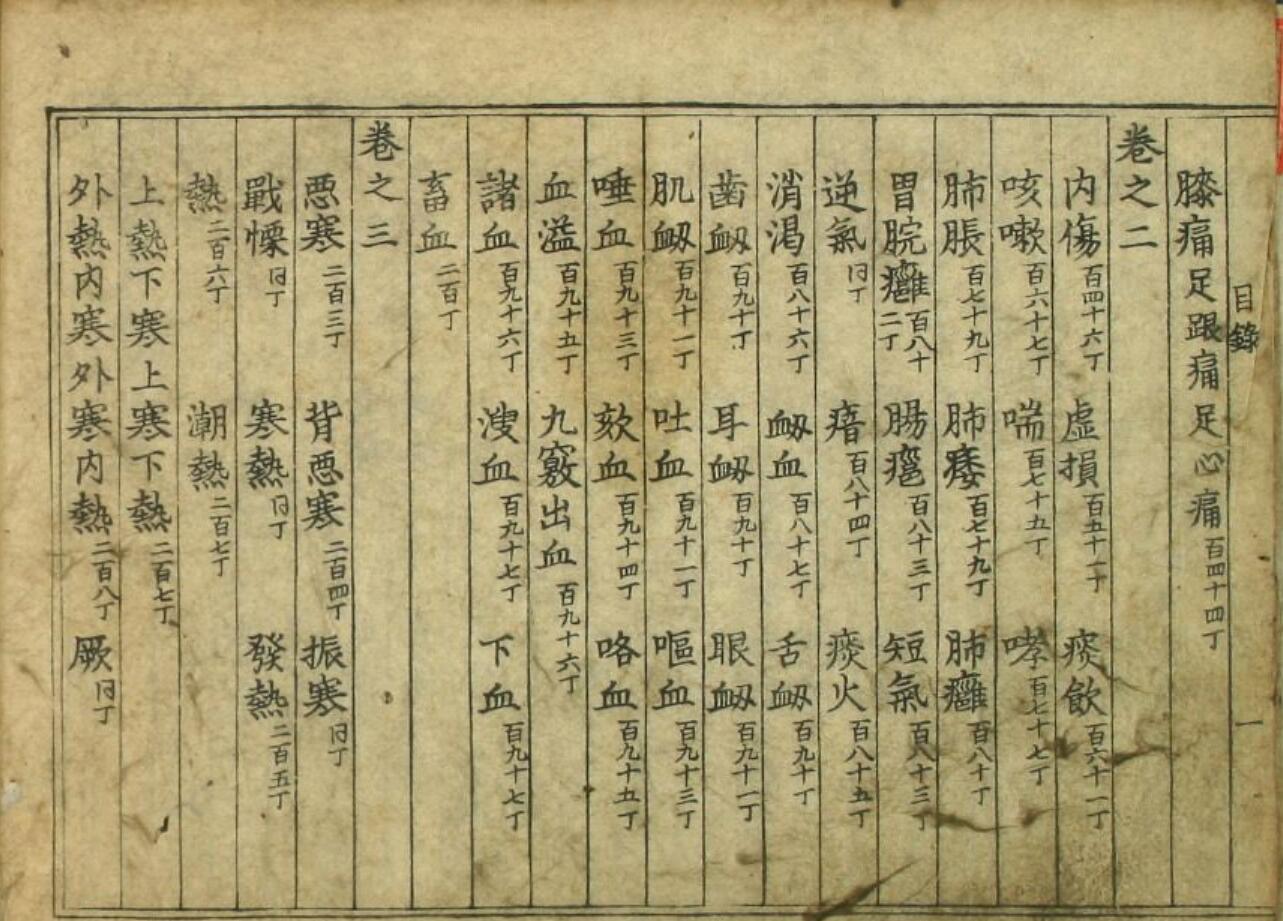 目錄 一
膝痛足跟痛足心痛 百四十四丁
卷之二
内傷 百四十六丁 虛損 百五十一丁 痰飮 百六十一丁
咳嗽 百六十七丁 喘 百七十五丁 哮 百七十七丁
肺脹 百七十九丁 肺痿 百七十九丁 肺癰 百八十丁
胃脘癰 百八十二丁 腸癰 百八十三丁 短氣 百八十三丁
逆氣 同丁 瘖 百八十四丁 痰火 百八十五丁
消渴 百八十六丁 衂血 百八十七丁 舌衂 百九十丁
齒衂 百九十丁 耳衂 百九十丁 眼衂 百九十一丁
肌衂 百九十一丁 吐血 百九十一丁 嘔血 百九十三丁
唾血 百九十三丁 欬血 百九十四丁 咯血 百九十五丁
血溢 百九十五丁 九竅出血 百九十六丁
諸血 百九十六丁 溲血 百九十七丁 下血 百九十七丁
畜血 二百丁
卷之三
惡寒 二百三丁 背惡寒 二百四丁 振寒 同丁
戰慄 同丁 寒熱 同丁 發熱 二百五丁
熱 二百六丁 潮熱 二百七丁
上熱下寒上寒下熱 二百七丁
外熱内寒外寒内熱 二百八丁 厥 同丁